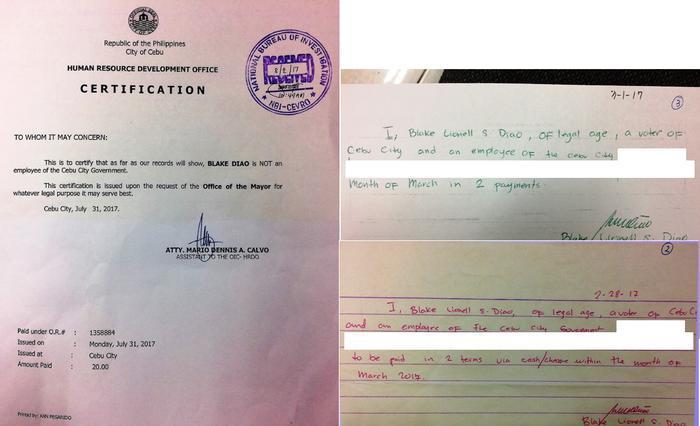 Republic of the Philippines
City of Cebu
HUMAN RESOURCE DEVELOPMENT OFFICE
CERTIFICATION
NATIONAL BUREAU OF INVESTIGATION
RECEIVED
8/2/17
NBI-CEVRO
TO WHOM IT MAY CONCERN:
This is to certify that as far as our records will show, BLAKE DIAO is NOT an
employee of the Cebu City Government.
This certification is issued upon the request of the Office of the Mayor for
whatever legal purpose it may serve best.
Cebu City, July 31, 2017.
ATTY. MARIO DENNIS A. CALVO
ASSISTANT TO THE OIC- HRDO
Paid under O.R.# : 1358884
Issued on : Monday, July 31, 2017
Issued at : Cebu City
Amount Paid : 20.00
Printed by: ANN PESARIDO
3-1-17
3
I, Blake Lionell S Diao, of legal age, a voter of
Cebu City and an employee of the cebu city
Month of March in 2 payments.
Blake Lionell S. Diao
2
2-28-17
I, Blake Lionell S. Diao, of legal age, a voter of Cebu C
and an employee of the Cebu City Government
to be paid in 2 terms via cash/cheque within the month of
March 2017.
Blake Lionell S. Diao